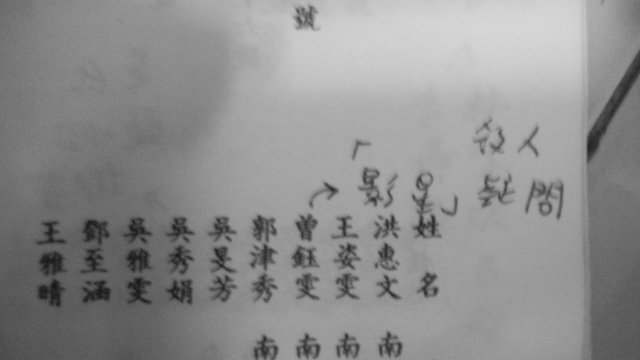 號
人
問
「影星」
姓名
洪惠文 南
王姿雯 南
曾鈺雯 南
郭津秀 南
吳旻芳
吳秀娟
吳雅雯
鄧至涵
王雅晴